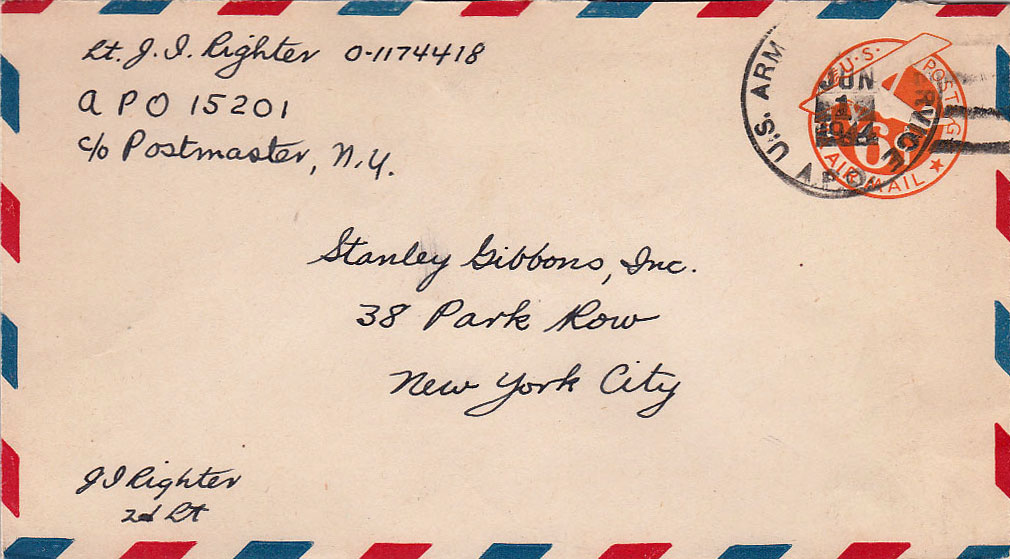 Lt. J. I. Righter 0-1174418
A P O 15201
c/o Postmaster, N.Y.
U.S. ARM
JUN
1
1944
A.P.O.
U.S. POSTAG
6
AIR MAIL
Stanley Gibbons, Inc.
38 Park Row
New York City
J I Righter
2d Lt